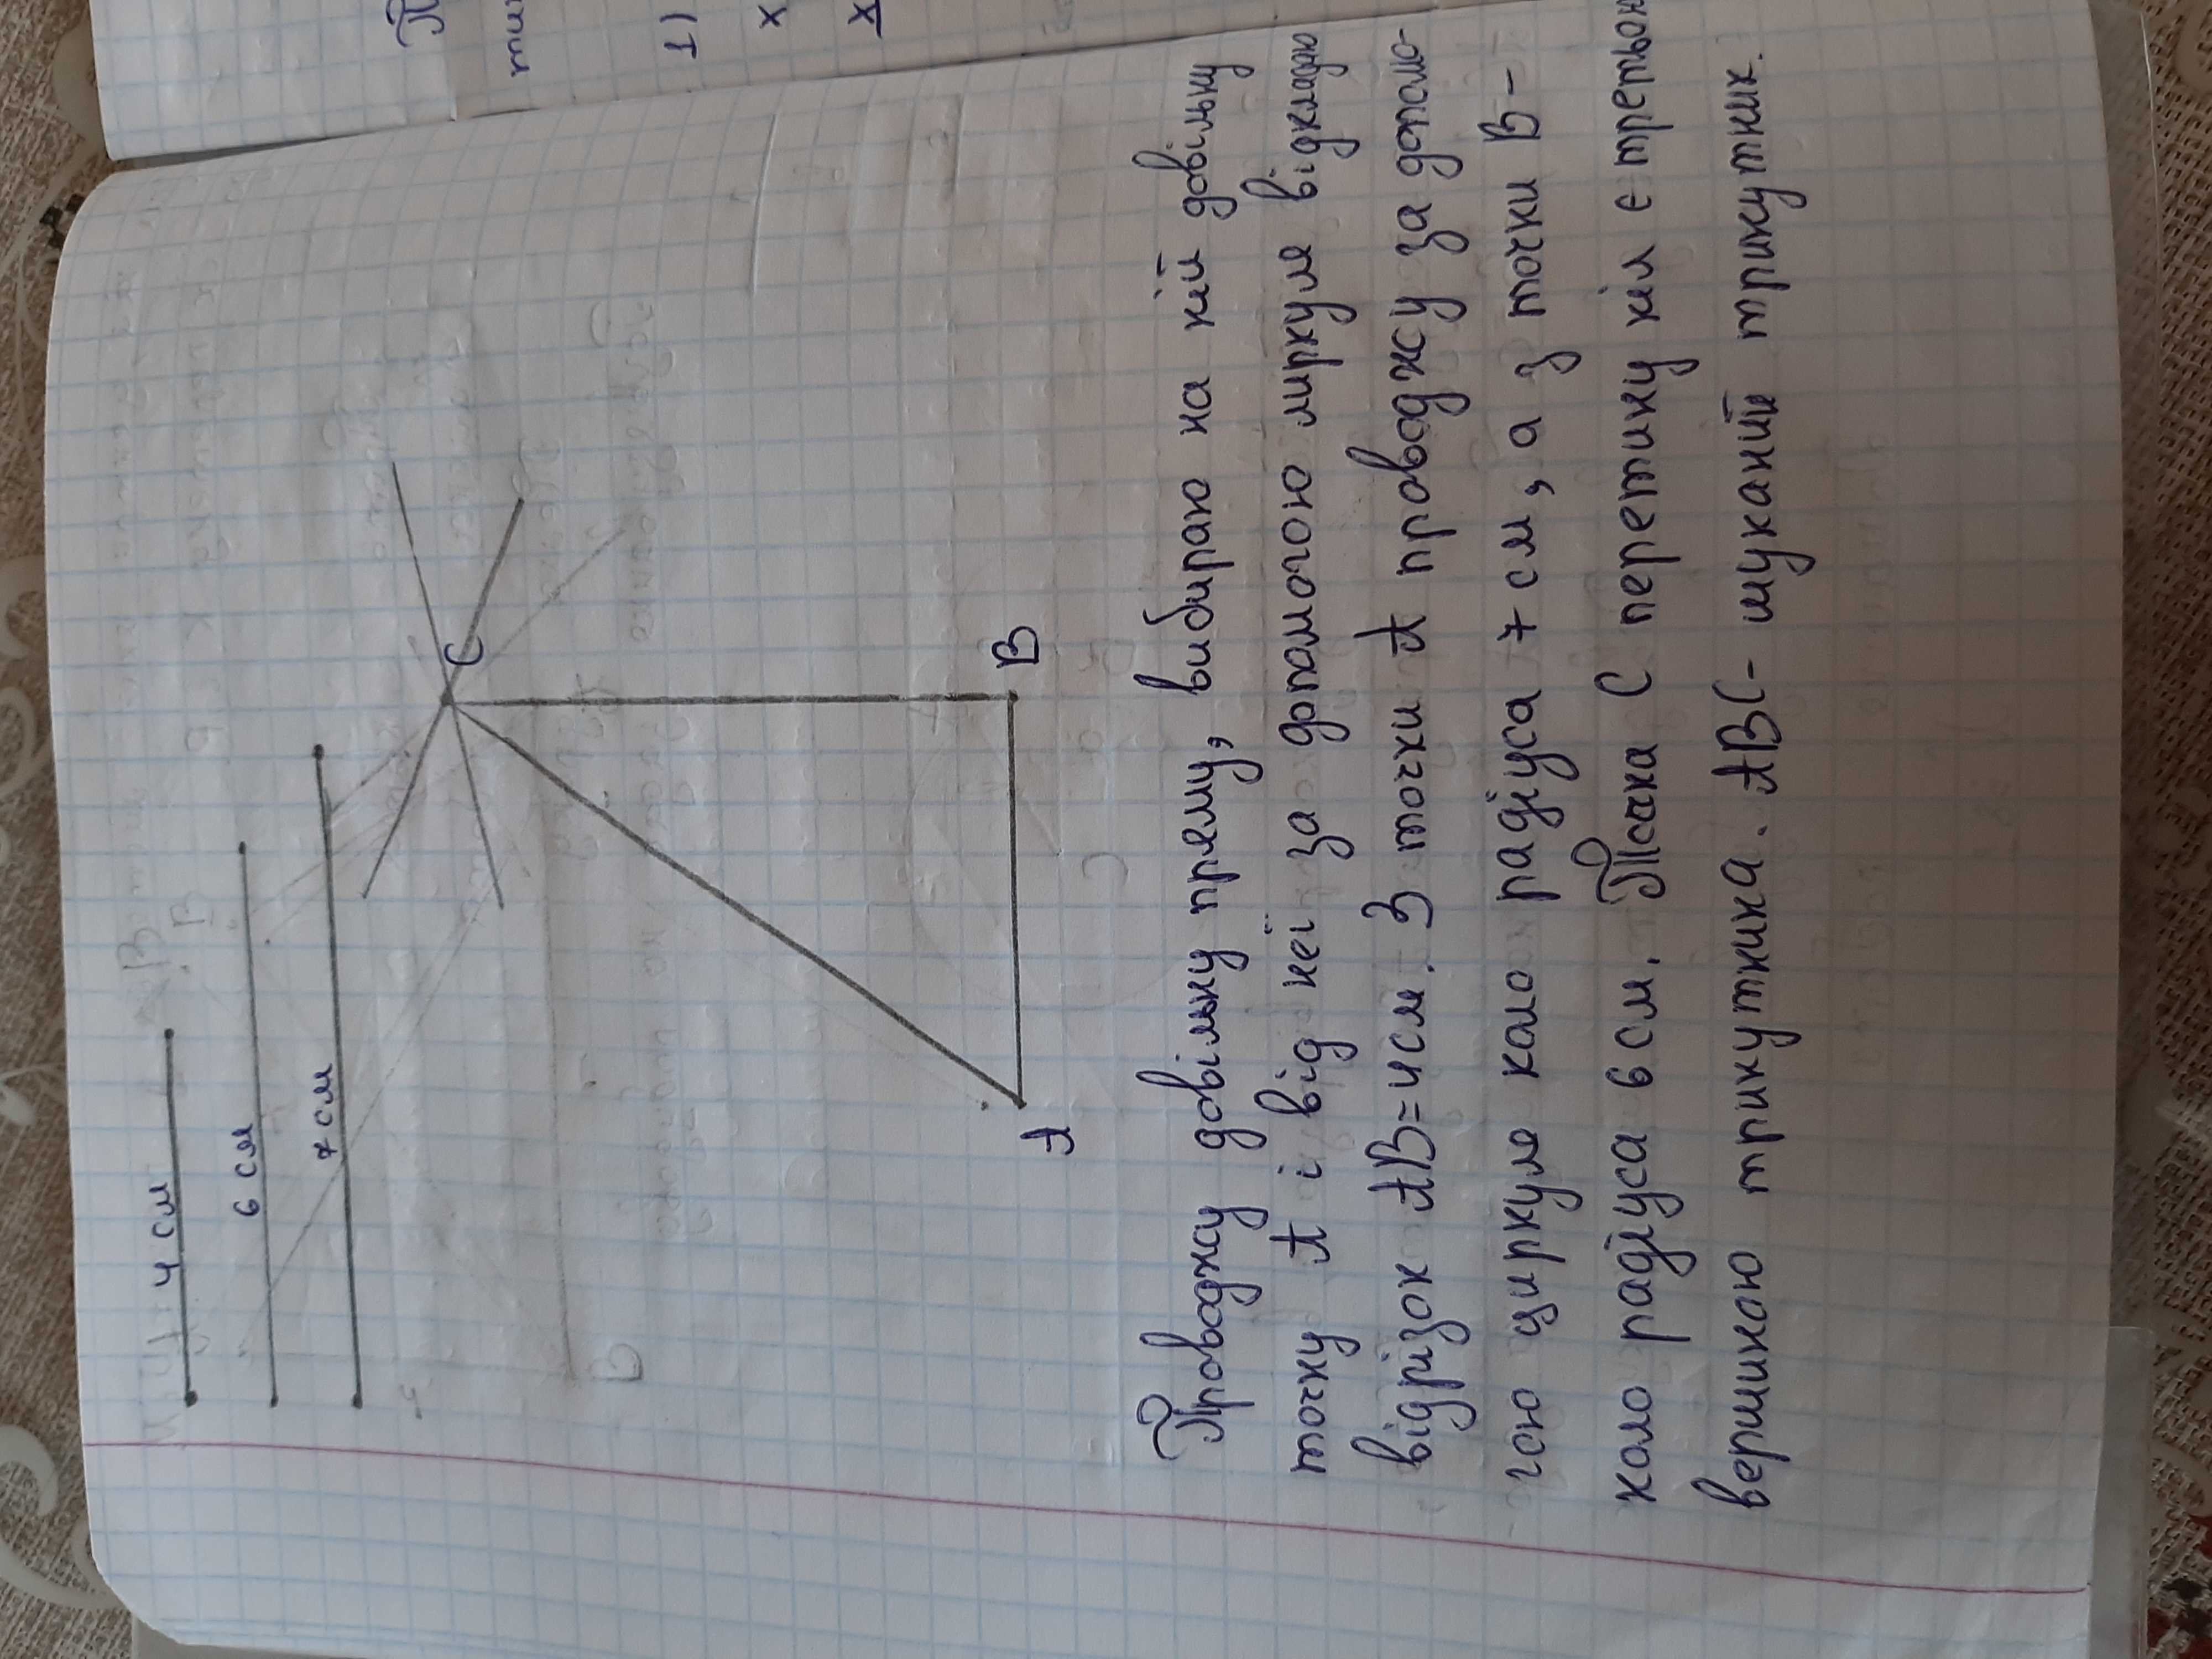 4 см
6 см
7 см
C
A
B
Проводжу довільну пряму, вибираю на ній довільну
точку А і від неї за допомогою циркуля відкладаю
відрізок АВ=4см. З точки А проводжу за допомо-
гою циркуля коло радіуса 7 см, а з точки В-
коло радіуса 6 см. Точка С перетину кіл є
вершиною трикутника. АВС- шуканий трикутник.
1)
x
x